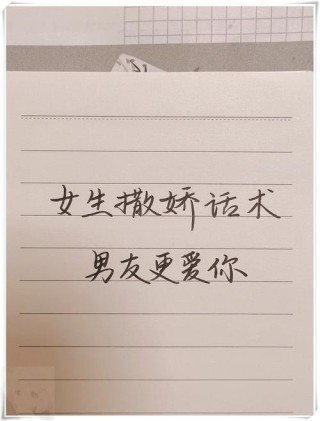 女生撒娇话术
男友更爱你